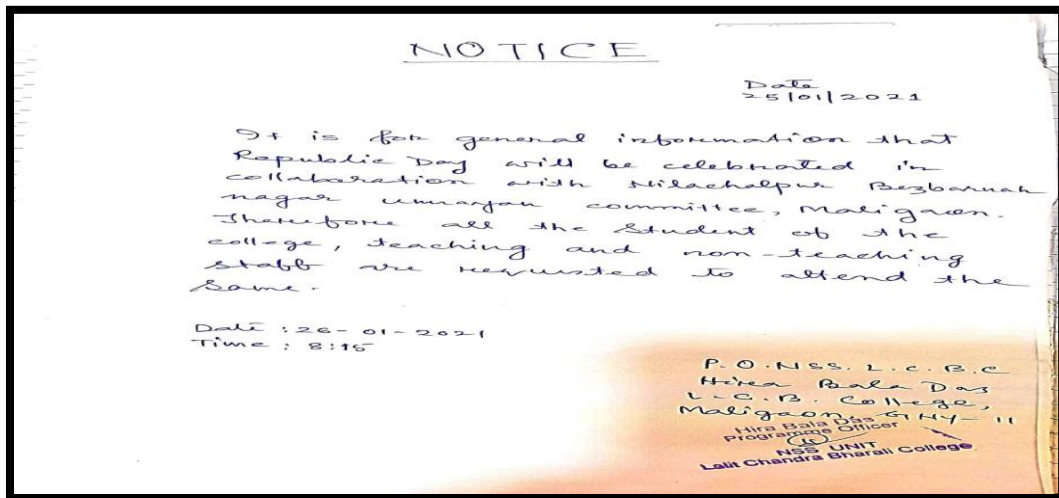 NOTICE
Date
25/01/2021
It is for general information that
Republic Day will be celebrated in
collaboration with Nilachalpur Bezbaruah
nagar unnayan committee, Maligaon.
Therefore all the Student of the
college, teaching and non-teaching
staff are requested to attend the
same.
Date : 26-01-2021
Time : 8:15
P.O. NSS. L.C.B.C
Hira Bala Das
L.C.B. College,
Maligaon, GHY-11
Hira Bala Das
Programme Officer
NSS UNIT
Lalit Chandra Bharali College